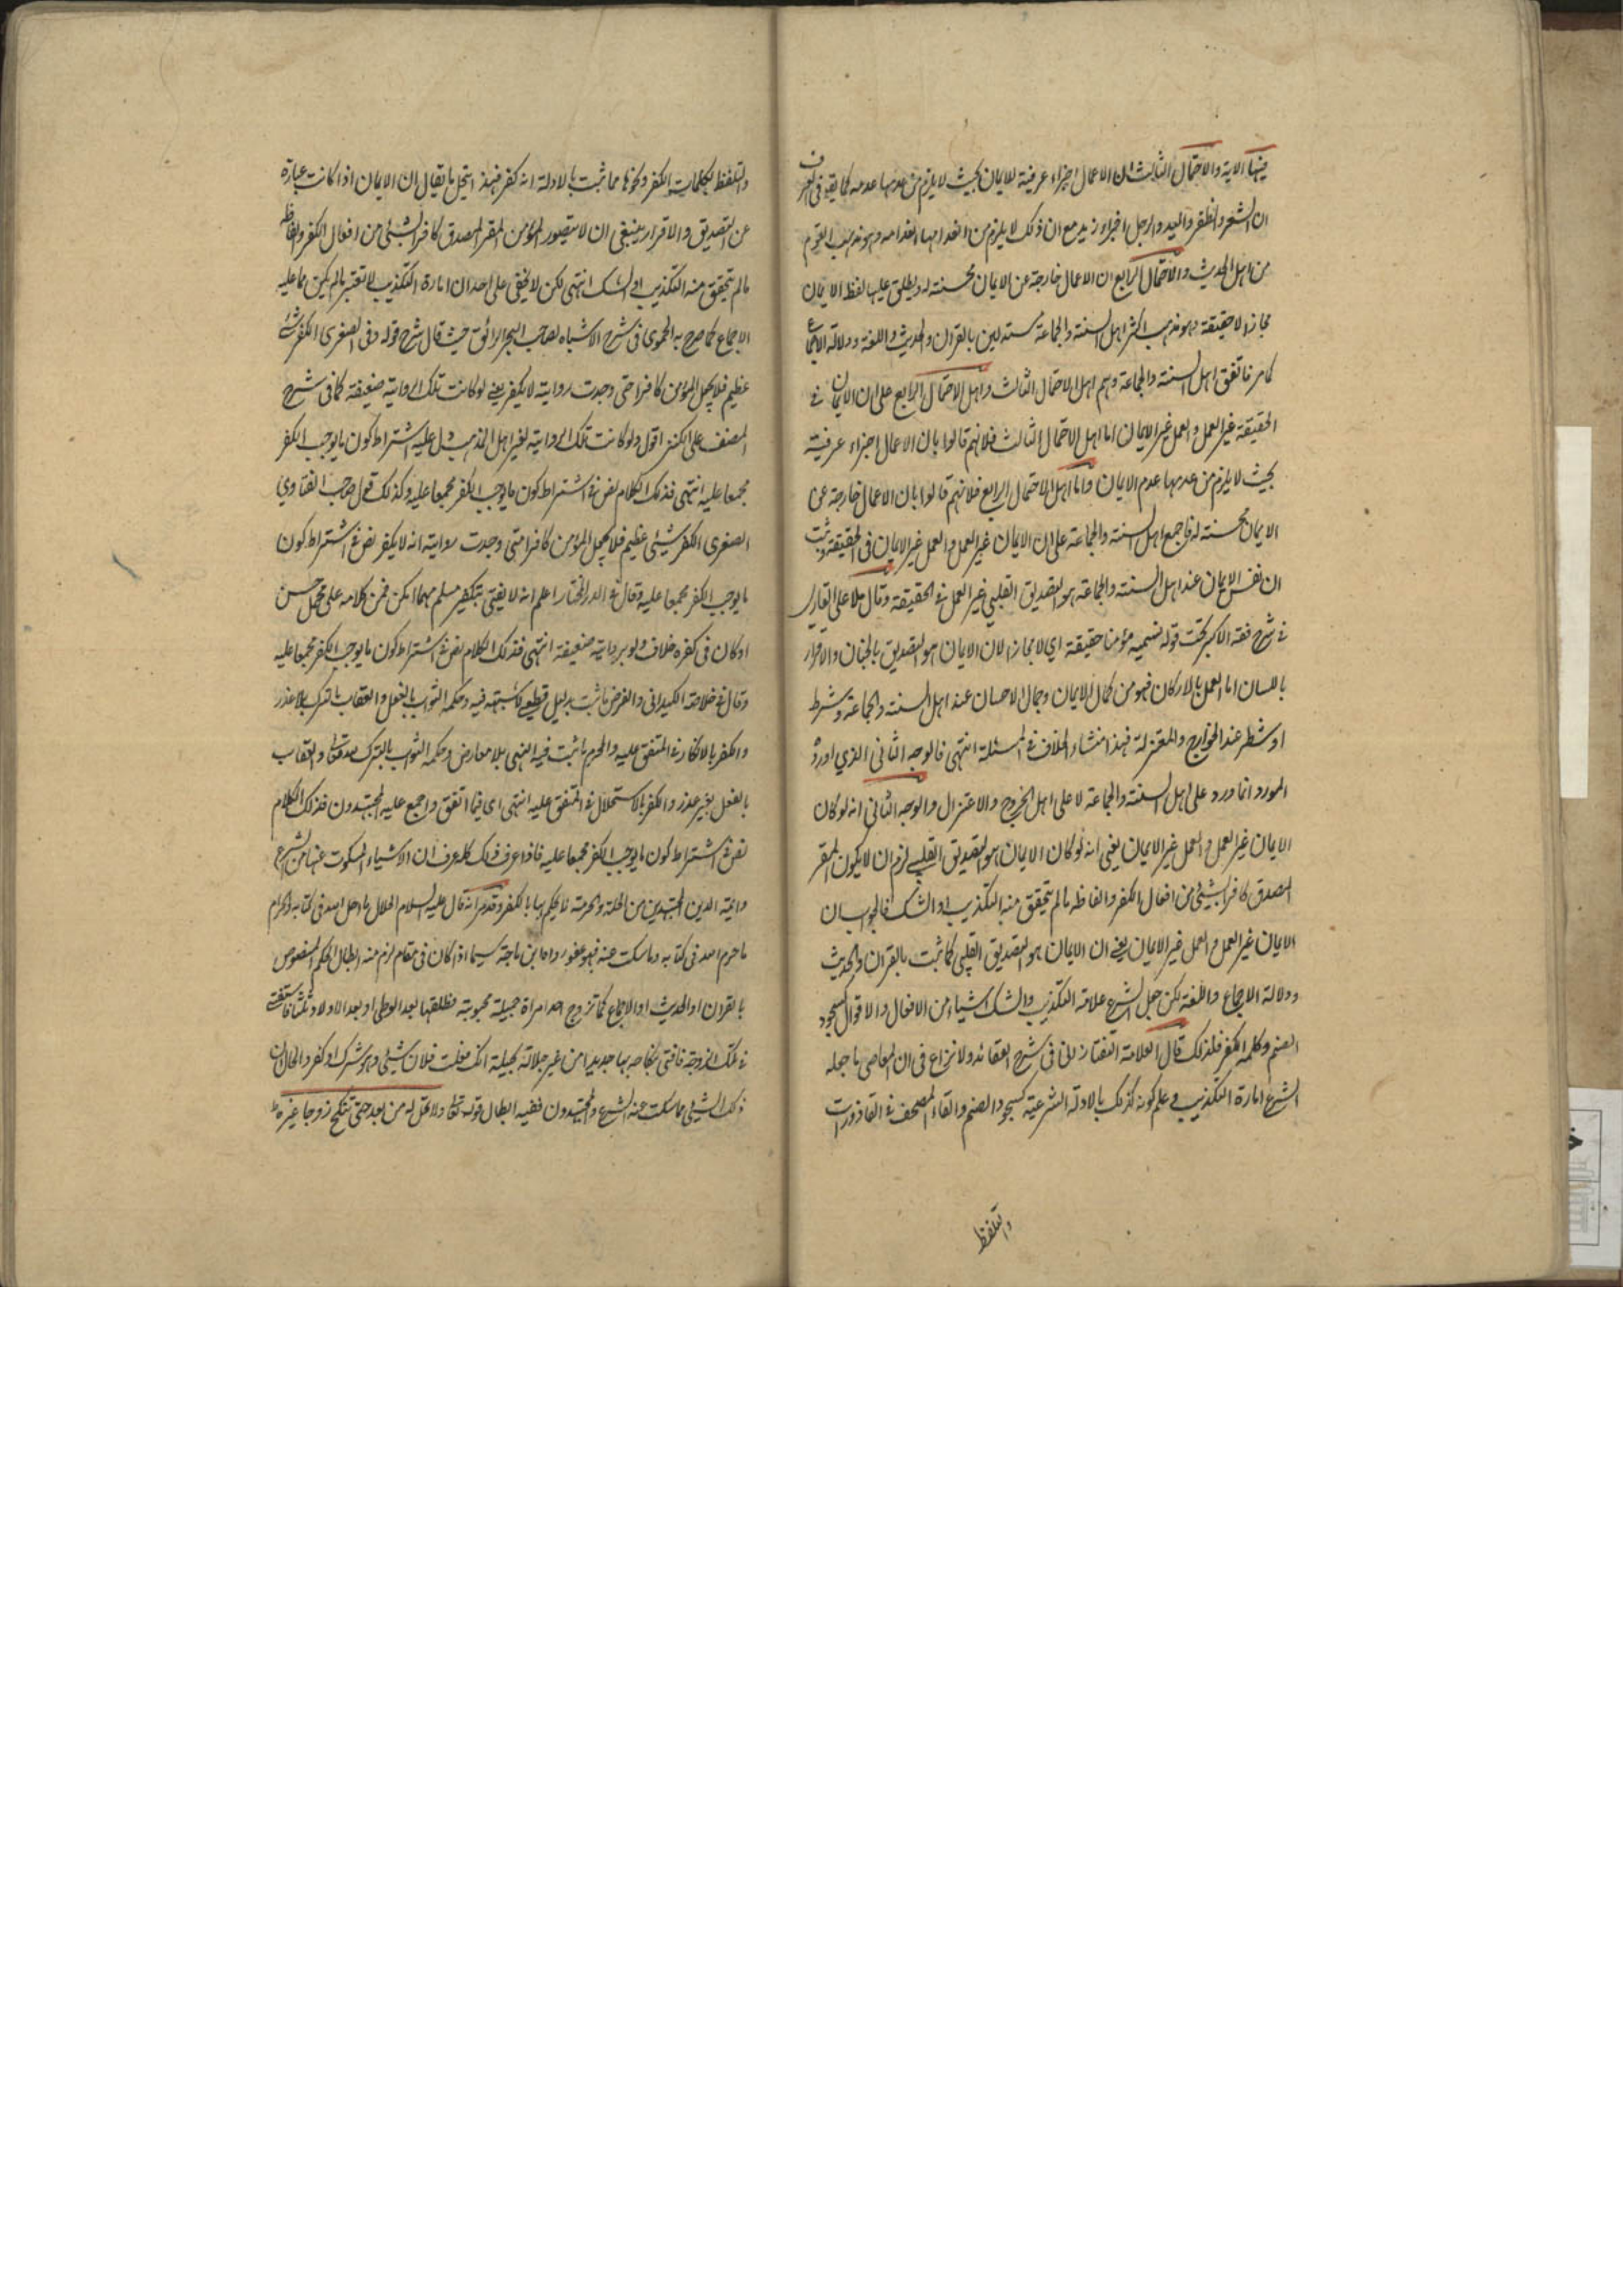 فيها الآية والاحتمال الثالث ان الاعمال اجزاء عرفية للايمان بحيث لا يلزم من عدمها عدمه كما يقر في العرف
ان الشعر والظفر واليد والرجل اجزاء زيد مع ان ذلك لا يلزم من انعدامها انعدامه وهو مذهب القوم
من اهل الحديث والاحتمال الرابع ان الاعمال خارجة عن الايمان محسنة له ويطلق عليها لفظ الايمان
مجازا لا حقيقة وهو مذهب اكثر اهل السنة والجماعة مستدلين بالقران والحديث واللغة ودلالة الاجماع
كما مر فاتفق اهل السنة والجماعة وهم اهل الاحتمال الثالث واهل الاحتمال الرابع على ان الايمان في
الحقيقة غير العمل والعمل غير الايمان اما اهل الاحتمال الثالث فلانهم قالوا بان الاعمال اجزاء عرفية
بحيث لا يلزم من عدمها عدم الايمان واما اهل الاحتمال الرابع فلانهم قالوا بان الاعمال خارجة عن
الايمان محسنة له فاجمع اهل السنة والجماعة على ان الايمان غير العمل والعمل غير الايمان في الحقيقة وثبت
ان نفس الايمان عند اهل السنة والجماعة هو التصديق القلبي غير العمل في الحقيقة وقال ملا علي القاري
في شرح فقه الاكبر تحت قوله نسميه مؤمنا حقيقة اي لا مجازا لان الايمان هو التصديق بالجنان والاقرار
باللسان اما العمل بالاركان فهو من كمال الايمان وجمال الاحسان عند اهل السنة والجماعة وشرط
او شطر عند الخوارج والمعتزلة فهذا منشاء الخلاف في المسئلة انتهى فالوجه الثاني الذي اورده
المورد انما ورد على اهل السنة والجماعة لا على اهل الخروج والاعتزال والوجه الثاني انه لو كان
الايمان غير العمل والعمل غير الايمان يعني انه لو كان الايمان هو التصديق القلبي لزم ان لا يكون المقر
المصدق كافرا بشيئ من افعال الكفر والفاظه مالم يتحقق منه التكذيب او الشك فالجواب ان
الايمان غير العمل والعمل غير الايمان يعني ان الايمان هو التصديق القلبي كما ثبت بالقران والحديث
ودلالة الاجماع واللغة لكن جعل الشرع علامة التكذيب والشك اشياء من الافعال والاقوال كسجود
الصنم وكلمة الكفر فلذلك قال العلامة التفتازاني في شرح العقائد ولا نزاع في ان المعاصي ما جعله
الشرع امارة التكذيب وعلم كونه كذلك بالادلة الشرعية كسجود الصنم والقاء المصحف في القاذورات
والتلفظ
والتلفظ بكلمات الكفر ونحوها مما ثبت بالادلة انه كفر فبهذا ينحل ما يقال ان الايمان اذا كانت عبارة
عن التصديق والاقرار ينبغي ان لا يصور المؤمن المقر المصدق كافرا بشيئ من افعال الكفر والفاظه
مالم يتحقق منه التكذيب او الشك انتهى لكن لا يخفى على احد ان امارة التكذيب لا تعتبر مالم يكن مما عليه
الاجماع كما صرح به الحموي في شرح الاشباه لصاحب البحر الرائق حيث قال شرح قوله وفي الصغرى الكفر شيئ
عظيم فلا يجعل المؤمن كافرا حتى وجدت رواية لا يكفر يعني لو كانت تلك الرواية ضعيفة كما في شرح
المصنف على الكنز اقول ولو كانت تلك الرواية لغير اهل المذهب يدل عليه اشتراط كون ما يوجب الكفر
مجمعا عليه انتهى فذلك الكلام نص في اشتراط كون ما يوجب الكفر مجمعا عليه وكذلك قول صاحب الفتاوى
الصغرى الكفر شيئ عظيم فلا يجعل المؤمن كافرا متى وجدت رواية انه لا يكفر نص في اشتراط كون
ما يوجب الكفر مجمعا عليه وقال في الدر المختار اعلم انه لا يفتى بتكفير مسلم مهما امكن حمل كلامه على محمل حسن
او كان في كفره خلاف ولو برواية ضعيفة انتهى فذلك الكلام نص في اشتراط كون ما يوجب الكفر مجمعا عليه
وقال في خلاصة الكيداني والفرض ما ثبت بدليل قطعي لا شبهة فيه وحكمه الثواب بالفعل والعقاب بالترك بلا عذر
والكفر بالانكار في المتفق عليه والحرم ما ثبت فيه النهي بلا معارض وحكمه الثواب بالترك لله تعالى والعقاب
بالفعل بغير عذر والكفر بالاستحلال في المتفق عليه انتهى اي فيما اتفق واجمع عليه المجتهدون فذلك الكلام
نص في اشتراط كون ما يوجب الكفر مجمعا عليه فاذا عرف ذلك كله عرف ان الاشياء المسكوت عنها من الشرع
وائمة الدين المجتهدين من الحلة والحرمة لا يحكم بها بالكفر وقد مر انه قال عليه السلام الحلال ما احل الله في كتابه والحرام
ما حرم الله في كتابه وما سكت عنه فهو عفو رواه ابن ماجة سيما اذا كان في مقام لزم منه ابطال الحكم المنصوص
بالقران او الحديث او الاجماع كما تزوج احد امراة جميلة محبوبة فطلقها بعد الوطي او بعد الاولاد ثلثا فاستفتى
في تلك الزوجة فافتى نكاحه بها جديدا من غير حلالة بحيلة انك فعلت فلان شيئ وهو شرك او كفر والحال ان
ذلك الشيئ مما سكت عنه الشرع والمجتهدون ففيه ابطال قوله تعالى ولا تحل له من بعد حتى تنكح زوجا غيره